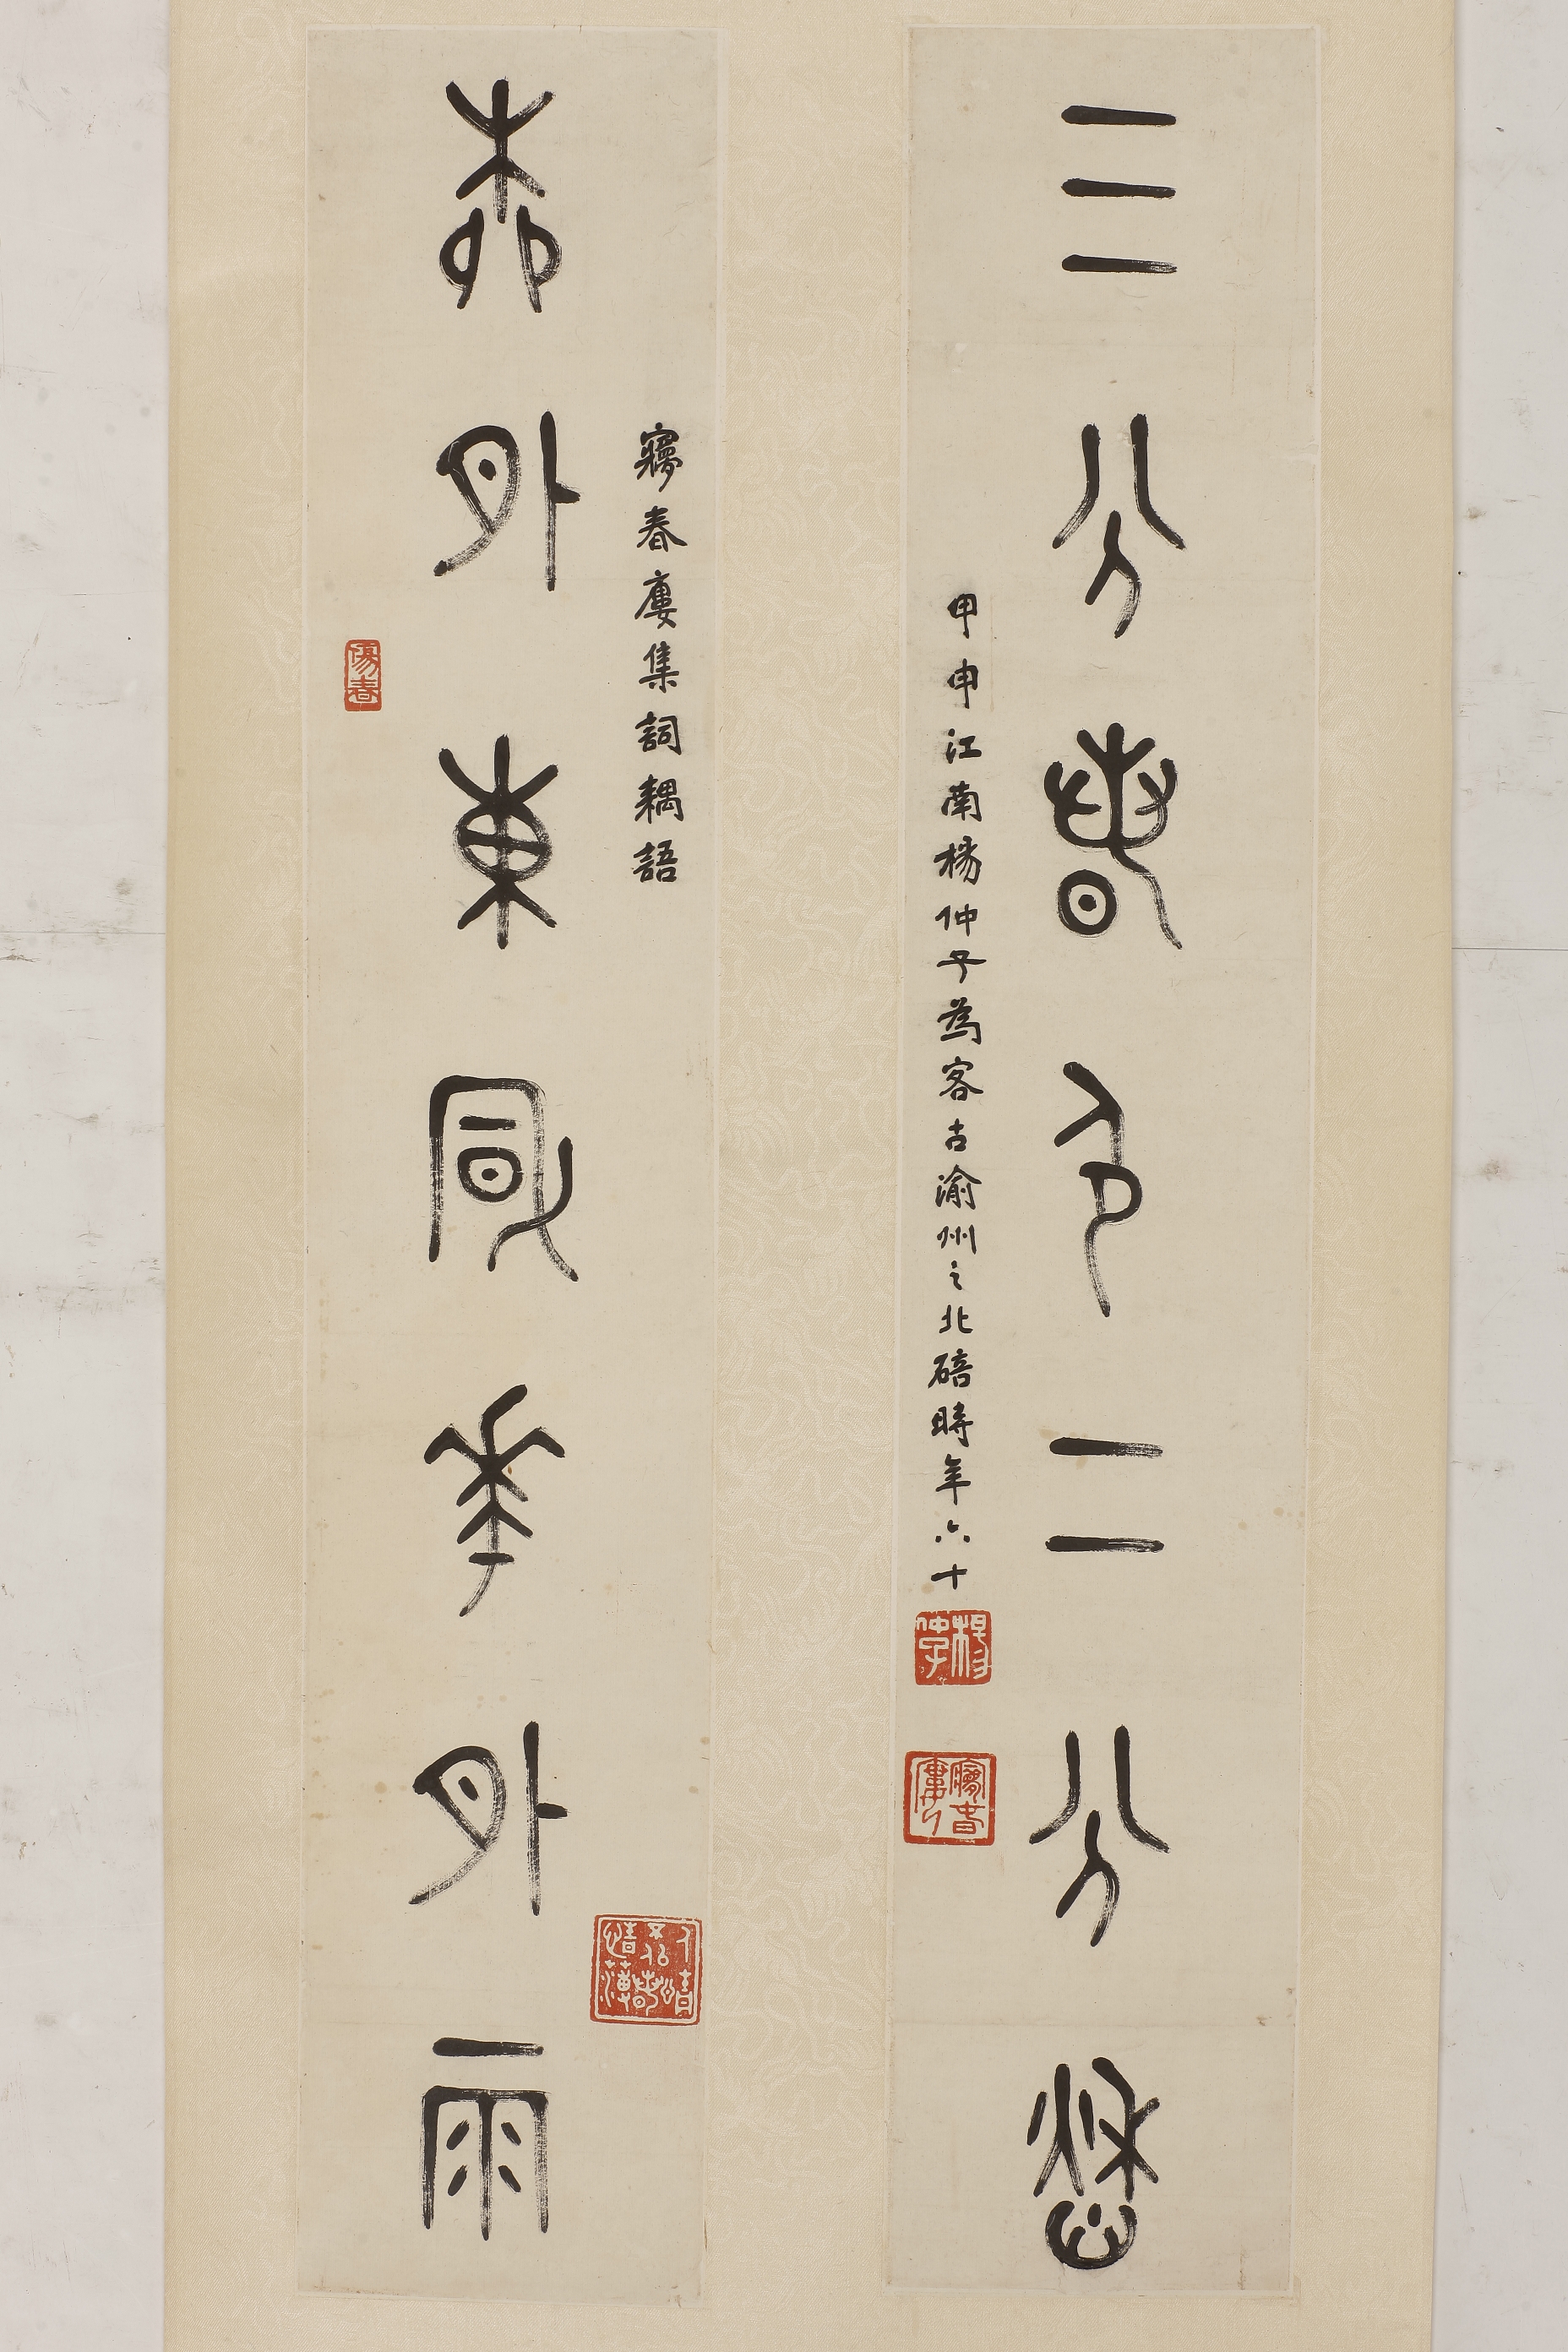 三分春色二分愁
甲申江南楊仲子為客古渝州之北碚時年六十
楊仲子
㝱春廔集詞耦語
柳外東風花外雨
傷春